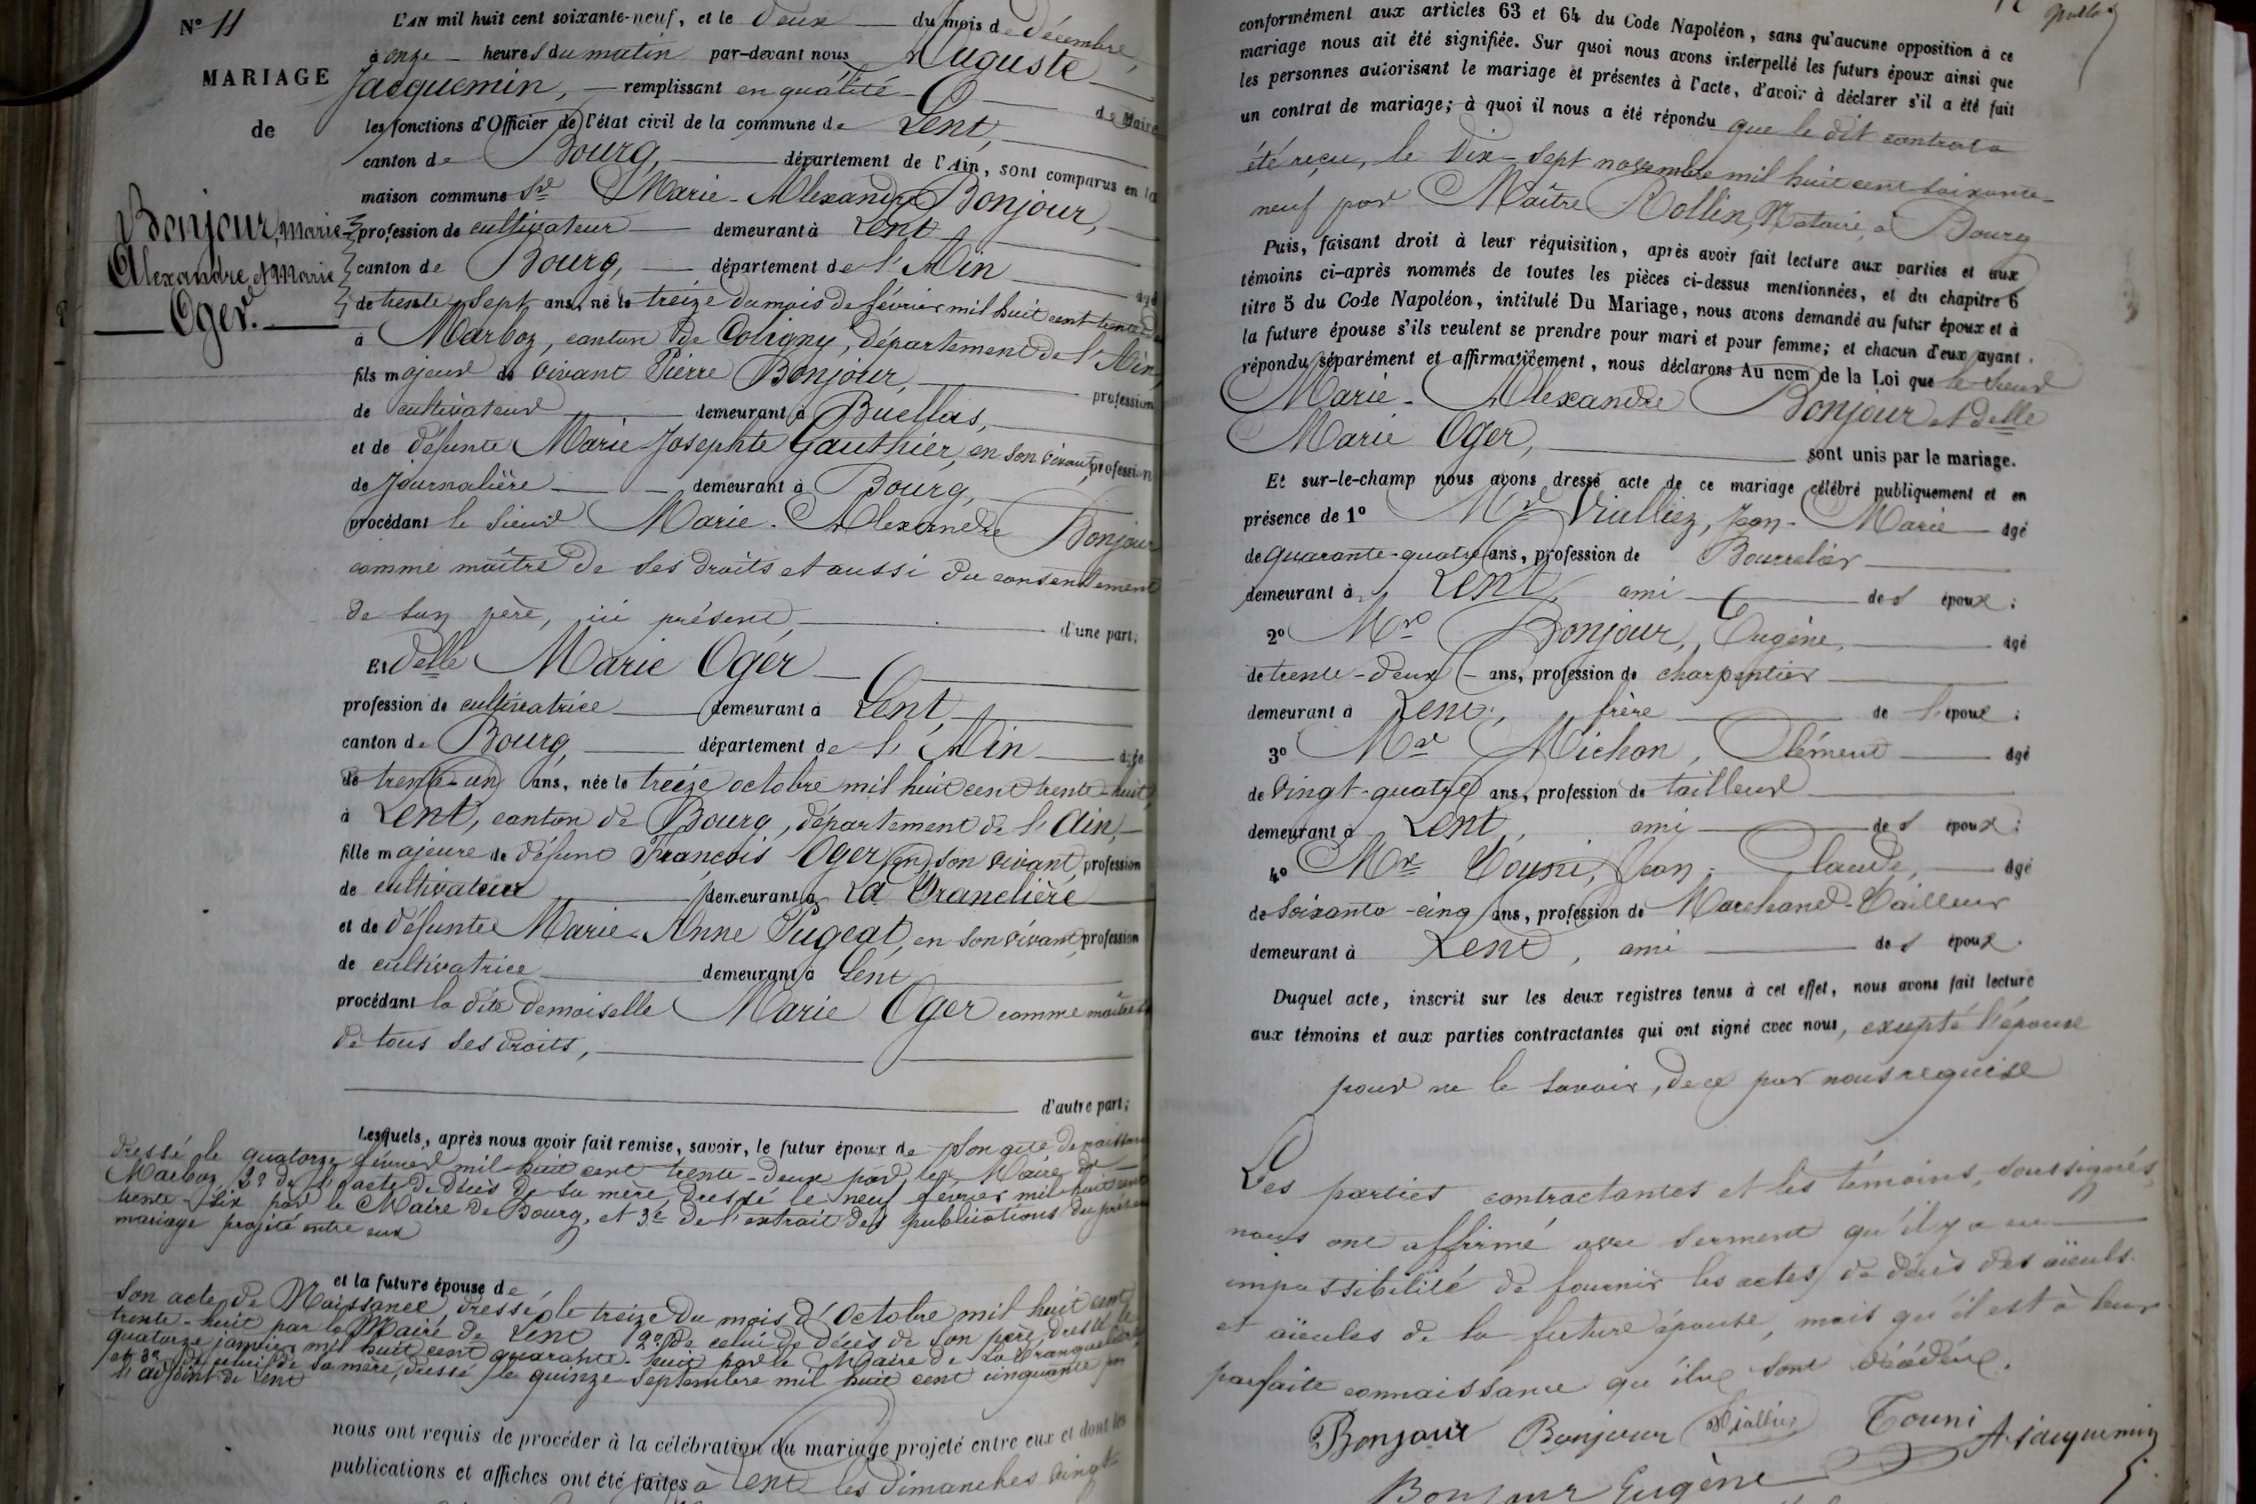 N° 11
MARIAGE
de
Bonjour, marie
Alexandre et Marie
Oger.
L'AN mil huit cent soixante-neuf, et le deux du mois de décembre,
à onze heures du matin par-devant nous Auguste
Jacquemin, remplissant en qualité de Maire
les fonctions d'Officier de l'état civil de la commune de Lent,
canton de Bourg, département de l'Ain, sont comparus en la
maison commune Sr Marie-Alexandre Bonjour,
profession de cultivateur demeurant à Lent
canton de Bourg, département de l'Ain âgé
de trente-sept ans, né le treize du mois de février mil huit cent trente-deux
à Marboz, canton de Coligny, département de l'Ain,
fils majeur de vivant Pierre Bonjour, profession
de cultivateur demeurant à Buellas,
et de défunte Marie-Josephte Gauthier, en son vivant, profession
de Journalière demeurant à Bourg,
procédant le sieur Marie-Alexandre Bonjour
comme maître de ses droits et aussi du consentement
de son père, ici présent, d'une part;
Et delle Marie Oger
profession de cultivatrice demeurant à Lent
canton de Bourg département de l'Ain âgée
de trente-un ans, née le treize octobre mil huit cent trente-huit
à Lent, canton de Bourg, département de l'Ain,
fille majeure de défunt François Oger en son vivant profession
de cultivateur demeurant à La Tranclière
et de défunte Marie-Anne Pugeat, en son vivant, profession
de cultivatrice demeurant à Lent
procédant la dite demoiselle Marie Oger comme maîtresse
de tous ses droits,
d'autre part;
Lesquels, après nous avoir fait remise, savoir, le futur époux de son acte de naissance
dressé le quatorze février mil huit cent trente-deux par le Maire de
Marboz, 2° de l'acte de décès de sa mère, dressé le neuf février mil huit cent
trente-six par le Maire de Bourg, et 3° de l'extrait des publications du présent
mariage projeté entre eux
et la future épouse de
son acte de Naissance, dressé le treize du mois d'Octobre mil huit cent
trente-huit par le Maire de Lent 2° De celui de décès de son père, dressé le
quatorze janvier mil huit cent quarante-huit par le Maire de La Tranclière
et 3° de celui de sa mère, dressé le quinze septembre mil huit cent cinquante par
l'adjoint de Lent
nous ont requis de procéder à la célébration du mariage projeté entre eux et dont les
publications et affiches ont été faites à Lent les dimanches vingt-
conformément aux articles 63 et 64 du Code Napoléon, sans qu'aucune opposition à ce
mariage nous ait été signifiée. Sur quoi nous avons interpellé les futurs époux ainsi que
les personnes autorisant le mariage et présentes à l'acte, d'avoir à déclarer s'il a été fait
un contrat de mariage; à quoi il nous a été répondu que le dit contrat a
été reçu, le dix-sept novembre mil huit cent soixante-
neuf par Maître Rollin, Notaire, à Bourg
Puis, faisant droit à leur réquisition, après avoir fait lecture aux parties et aux
témoins ci-après nommés de toutes les pièces ci-dessus mentionnées, et du chapitre 6
titre 5 du Code Napoléon, intitulé Du Mariage, nous avons demandé au futur époux et à
la future épouse s'ils veulent se prendre pour mari et pour femme; et chacun d'eux ayant
répondu séparément et affirmativement, nous déclarons Au nom de la Loi que le sieur
Marie-Alexandre Bonjour et delle
Marie Oger, sont unis par le mariage.
Et sur-le-champ nous avons dressé acte de ce mariage célébré publiquement et en
présence de 1° Mr Vrielliez, Jean-Marie âgé
de quarante-quatre ans, profession de Bourrelier
demeurant à Lent, ami des époux;
2° Mr Bonjour, Eugène, âgé
de trente-deux ans, profession de charpentier
demeurant à Lent, frère de l'époux;
3° Mr Michon, Clément âgé
de vingt-quatre ans, profession de tailleur
demeurant à Lent, ami des époux;
4° Mr Touni, Jean-Claude, âgé
de soixante-cinq ans, profession de Marchand-Tailleur
demeurant à Lent, ami des époux.
Duquel acte, inscrit sur les deux registres tenus à cet effet, nous avons fait lecture
aux témoins et aux parties contractantes qui ont signé avec nous, excepté l'épouse
pour ne le savoir, de ce par nous requise
Les parties contractantes et les témoins, soussignés,
nous ont affirmé avec serment qu'il y a eu
impossibilité de fournir les actes de décès des aïeuls
et aïeules de la future épouse, mais qu'il est à leur
parfaite connaissance qu'ils sont décédés.
Bonjour Bonjour Touni A. Jacquemin
Bonjour Eugène